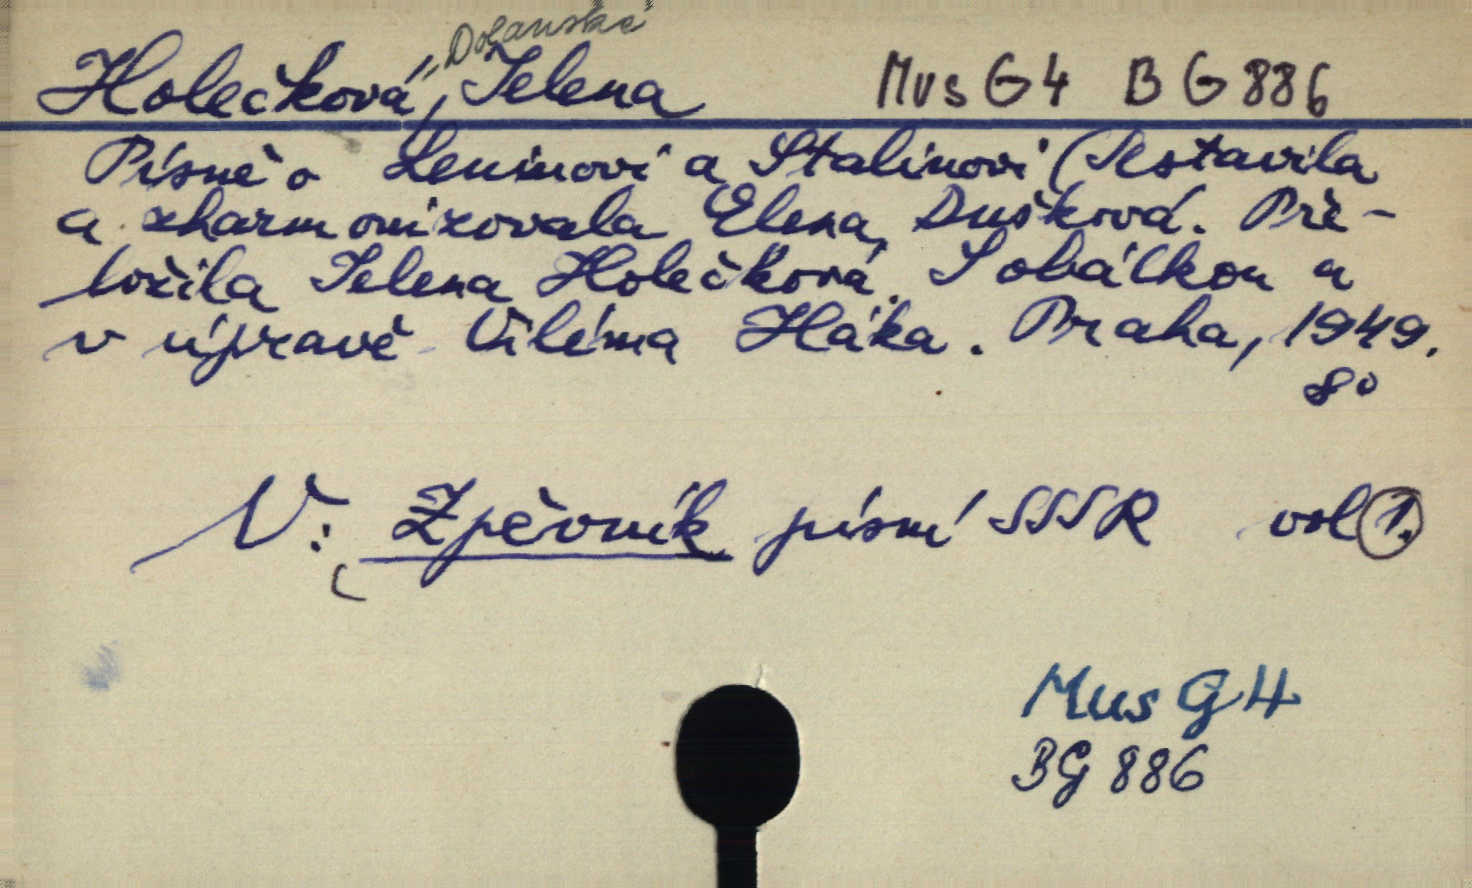 Holečková, Jelena Mus G4 B G 886
Písně o Leninovi a Stalinovi (Sestavila
a zharmonizovala Elena Dušková. Pře-
ložila Jelena Holečková. S obálkou a
v úpravě Viléma Háka. Praha, 1949.
8°
V: Zpěvník písní SSSR vol 1.
Mus G 4
BG 886